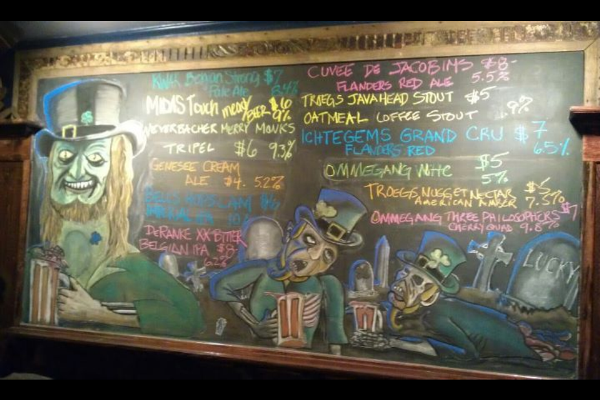 Strong $7
Pale Ale 8.4%
MIDAS Touch mead/
BEER $6
9%
WEYERBACHER MERRY MONKS
TRIPEL $6 9.3%
GENESEE CREAM
ALE $4. 5.2%
DERANKE XX BITTER
BELGIAN IPA
6.2%
CUVEE DE JACOBINS $8-
FLANDERS RED ALE 5.5%
TROEGS JAVAHEAD STOUT $5
OATMEAL COFFEE STOUT
ICHTEGEMS GRAND CRU $7
FLANDERS RED 6.5%
OMMEGANG Witte $5
5%
TROEGS NUGGET NECTAR $5
AMERICAN AMBER 7.5%
OMMEGANG THREE PHILOSOPHERS $7
CHERRY QUAD 9.8%
LUCKY